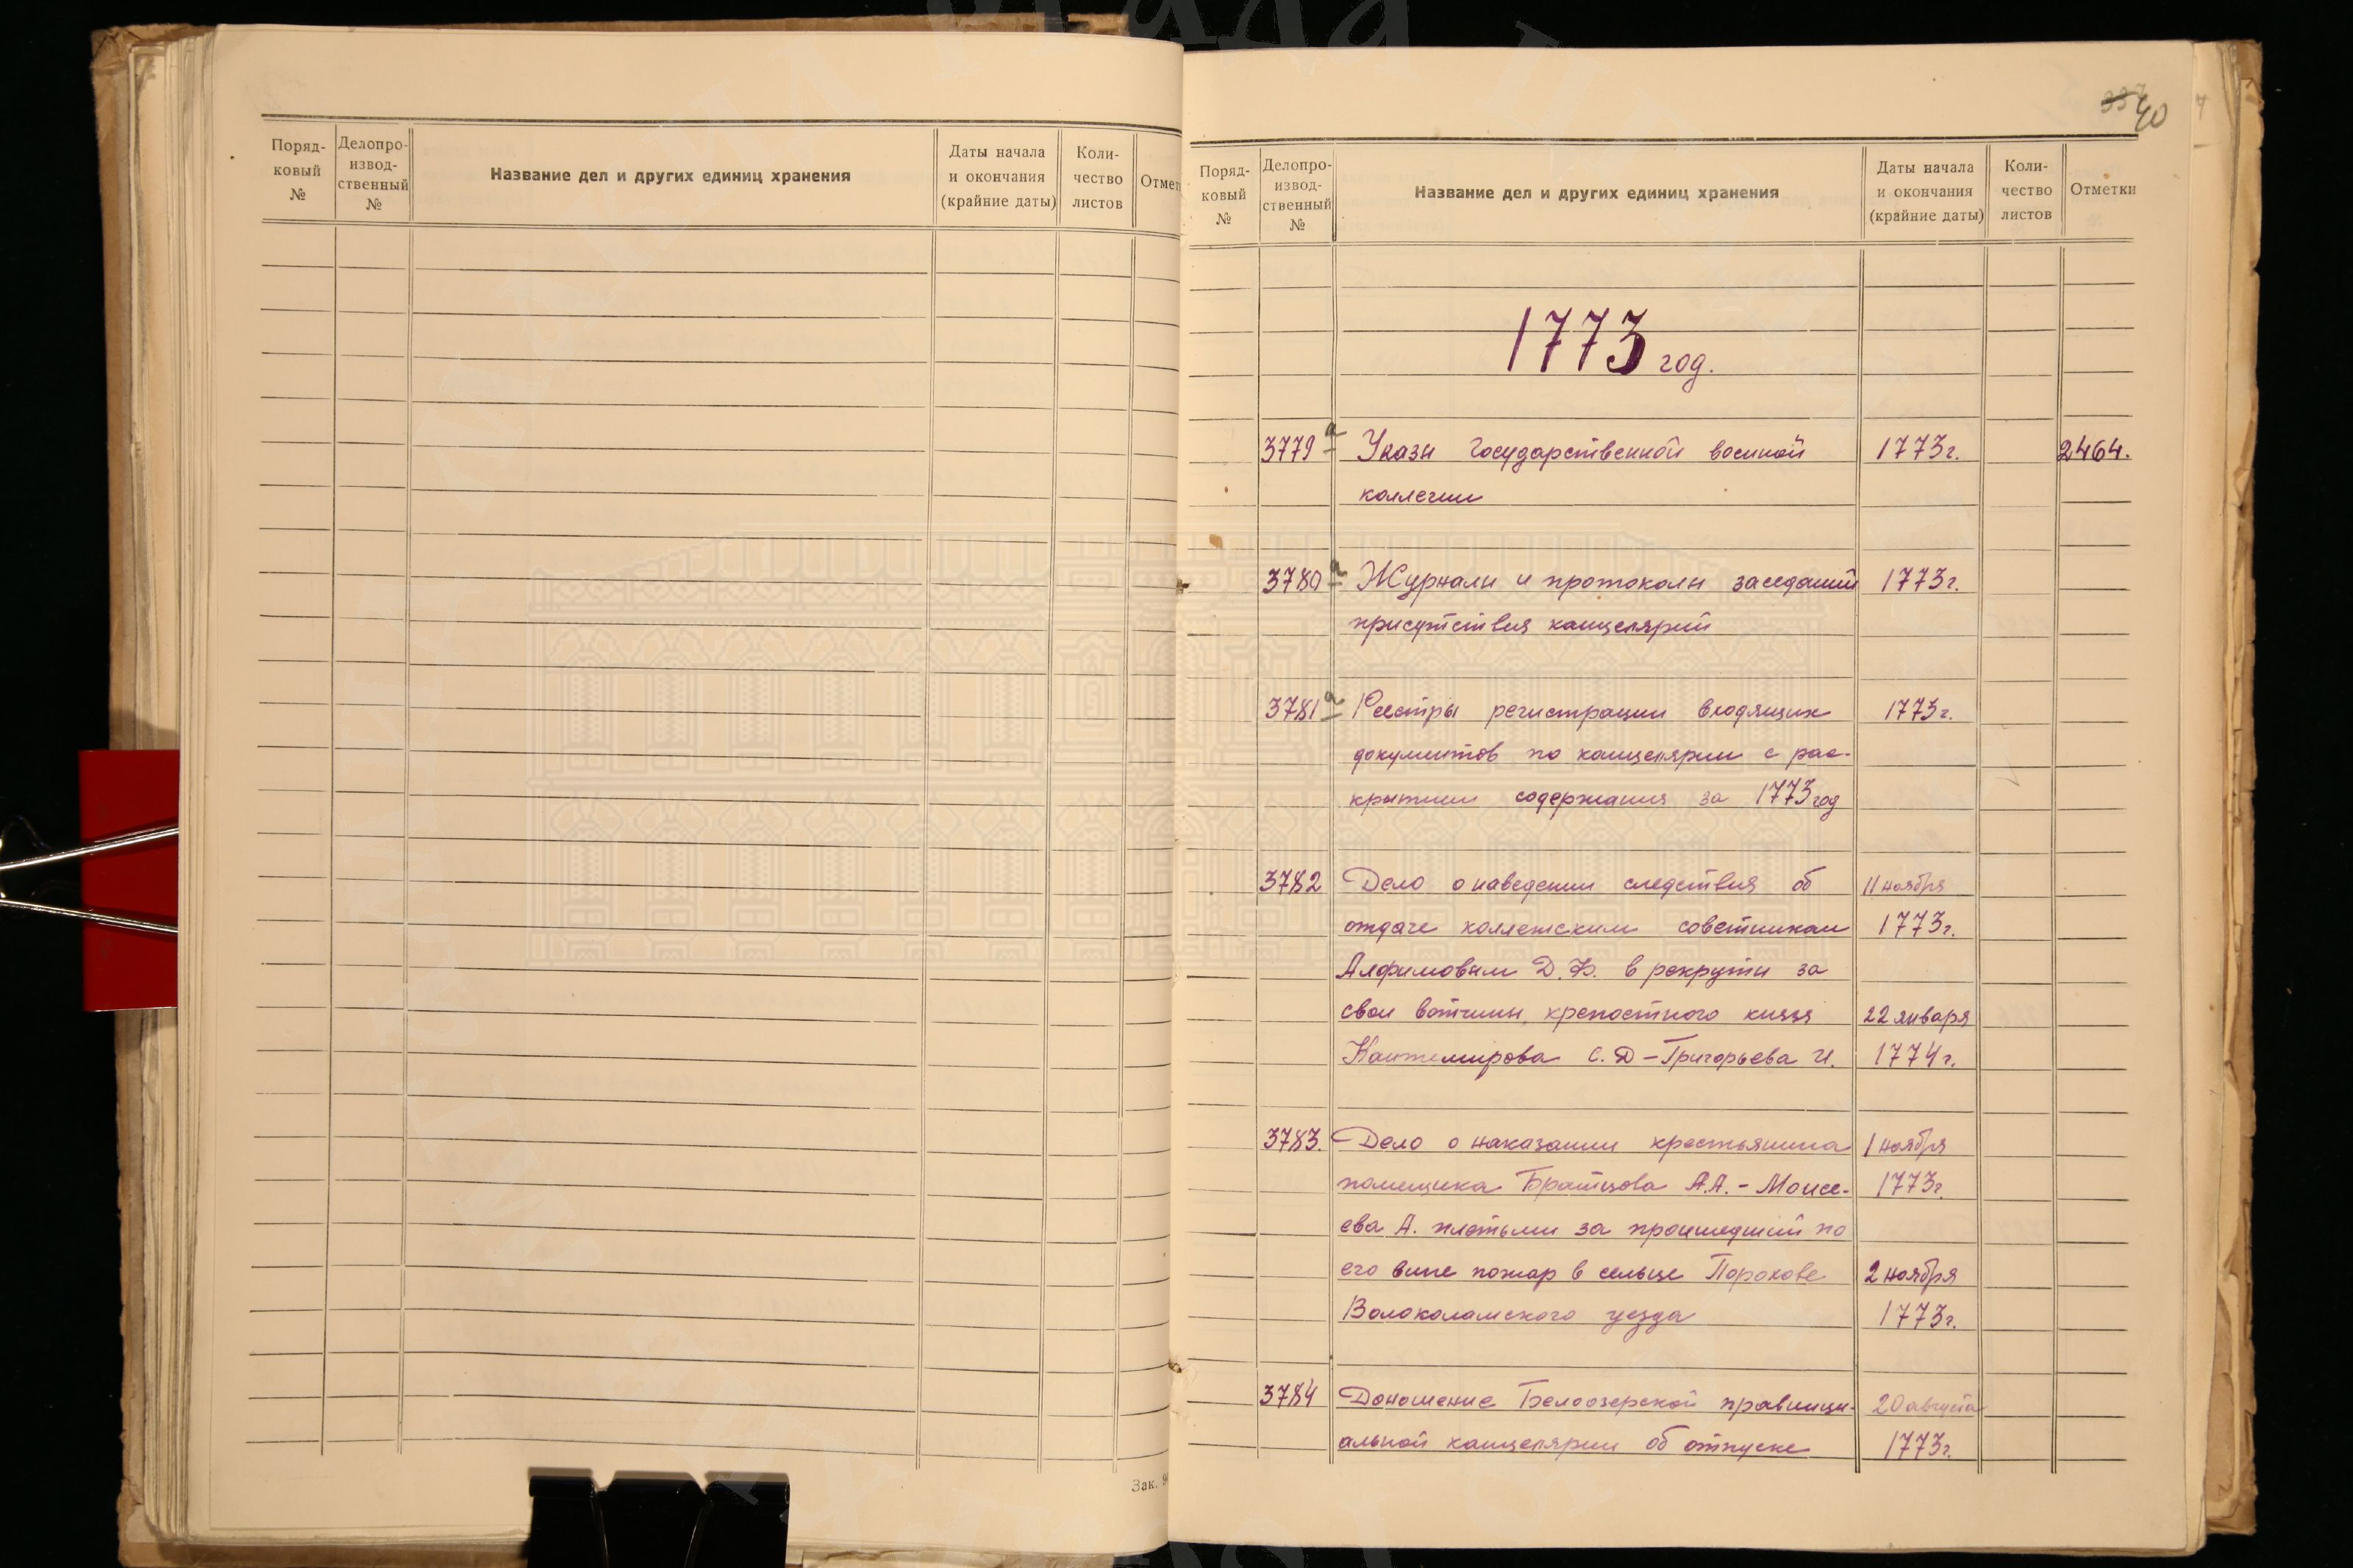 Поряд-
ковый
№
Делопро-
извод-
ственный
№
Название дел и других единиц хранения
Даты начала
и окончания
(крайние даты)
Коли-
чество
листов
Отмет
Зак. 9
40
Поряд-
ковый
№
Делопро-
извод-
ственный
№
Название дел и других единиц хранения
Даты начала
и окончания
(крайние даты)
Коли-
чество
листов
Отметки
1773 год.
3779а Указы Государственной военной 1773г. 2464.
коллегии
3780а Журналы и протоколы заседаний 1773г.
присутствия канцелярий
3781а Реестры регистрации входящих 1773г.
документов по канцелярии с рас-
крытием содержания за 1773 год
3782 Дело о наведении следствия об 11 ноября
отдаче коллежским советником 1773г.
Алфимовым Д.Ф. в рекруты за
свои вотчины, крепостного князя 22 января
Кантемирова С.Д - Григорьева И. 1774г.
3783. Дело о наказании крестьянина 1 ноября
помещика Братцова А.А. - Моисе- 1773г.
ева А. плетьми за происшедший по
его вине пожар в сельце Порохове 2 ноября
Волоколамского уезда 1773г.
3784 Доношение Белоозерской правинци- 20 августа
альной канцелярии об отпуске 1773г.